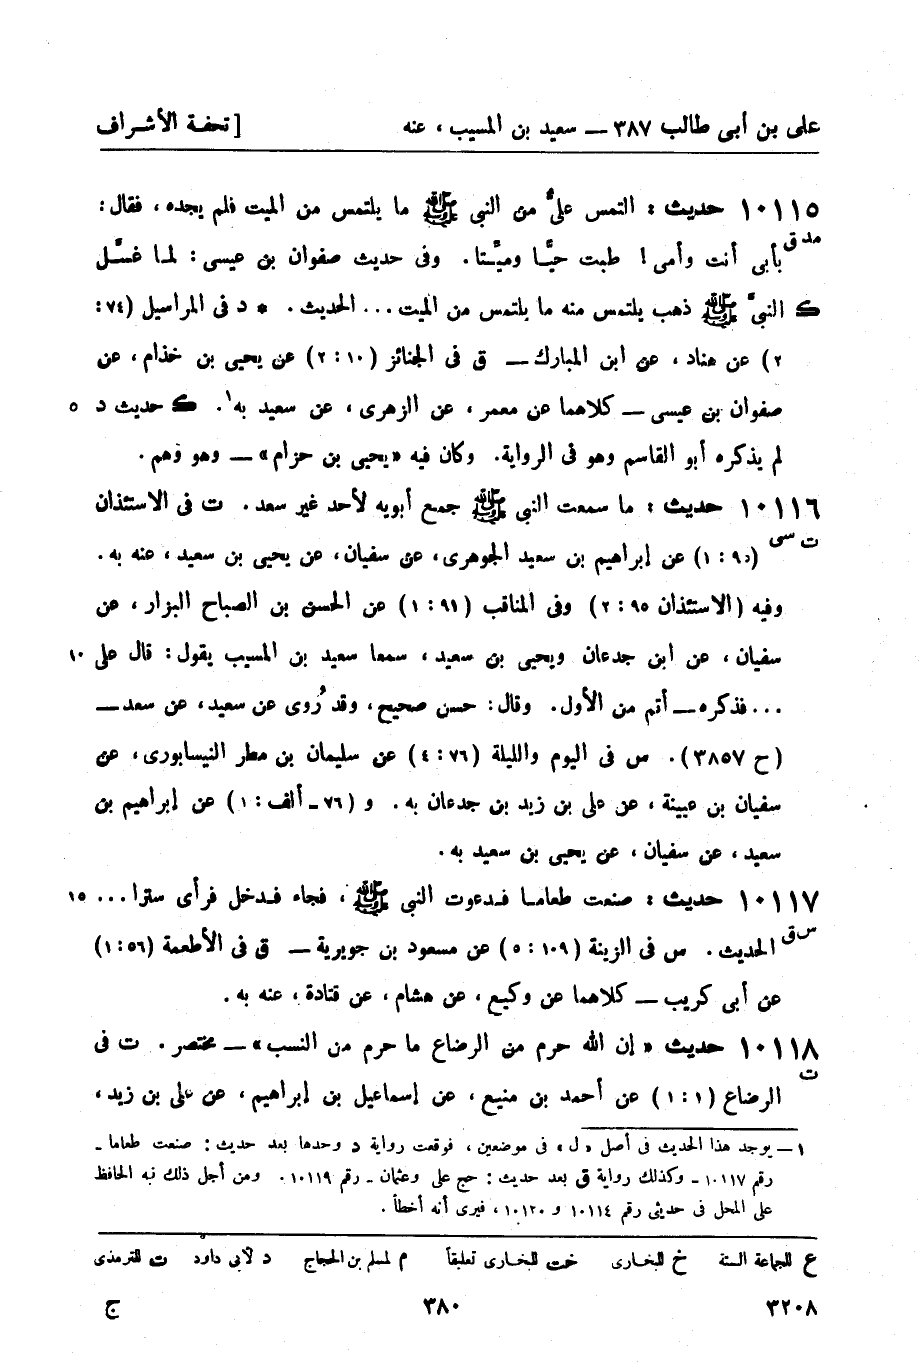 على بن أبى طالب ٣٨٧ — سعيد بن المسيب ، عنه [ تحفة الأشراف
١٠١١٥ حديث : التمس علىٌّ من النبى ﷺ ما يلتمس من الميت فلم يجده ، فقال :
مد ق بأبى أنت وأمى ! طبت حيًّا وميَّتا . وفى حديث صفوان بن عيسى : لما غسَّل
ك النبىَّ ﷺ ذهب يلتمس منه ما يلتمس من الميت ... الحديث . * د فى المراسيل (٧٤ :
٢) عن هناد ، عن ابن المبارك — ق فى الجنائز (١٠ : ٢) عن يحيى بن خذام ، عن
صفوان بن عيسى — كلاهما عن معمر ، عن الزهرى ، عن سعيد به١ . ك حديث د ٥
لم يذكره أبو القاسم وهو فى الرواية . وكان فيه «يحيى بن حزام» — وهو وَهم .
١٠١١٦ حديث : ما سمعت النبى ﷺ جمع أبويه لأحد غير سعد . ت فى الاستئذان
ت سى (٩٥ : ١) عن إبراهيم بن سعيد الجوهرى ، عن سفيان ، عن يحيى بن سعيد ، عنه به .
وفيه (الاستئذان ٩٥ : ٢) وفى المناقب (٩١ : ١) عن الحسن بن الصباح البزار ، عن
سفيان ، عن ابن جدعان ويحيى بن سعيد ، سمعا سعيد بن المسيب يقول : قال على ١٠
... فذكره — أتم من الأول . وقال : حسن صحيح ، وقد رُوى عن سعيد ، عن سعد —
(ح ٣٨٥٧) . س فى اليوم والليلة (٧٦ : ٤) عن سليمان بن مطر النيسابورى ، عن
سفيان بن عيينة ، عن على بن زيد بن جدعان به . و (٧٦ - ألف : ١) عن إبراهيم بن
سعيد ، عن سفيان ، عن يحيى بن سعيد به .
١٠١١٧ حديث : صنعت طعاما فدعوت النبى ﷺ ، فجاء فدخل فرأى سترا ... ١٥
س ق الحديث . س فى الزينة (١٠٩ : ٥) عن مسعود بن جويرية — ق فى الأطعمة (٥٦ : ١)
عن أبى كريب — كلاهما عن وكيع ، عن هشام ، عن قتادة ، عنه به .
١٠١١٨ حديث « إن الله حرم من الرضاع ما حرم من النسب » — مختصر . ت فى
ت الرضاع (١ : ١) عن أحمد بن منيع ، عن إسماعيل بن إبراهيم ، عن على بن زيد ،
١ — يوجد هذا الحديث فى أصل « ل » فى موضعين ، فوقعت رواية د وحدها بعد حديث : صنعت طعاما -
رقم ١٠١١٧ - وكذلك رواية ق بعد حديث : حج على وعثمان - رقم ١٠١١٩ . ومن أجل ذلك نبه الحافظ
على المحل فى حديثى رقم ١٠١١٤ و ١٠١٢٠ ، فيرى أنه أخطأ .
ع للجماعة الستة خ للبخارى خت للبخارى تعليقاً م لمسلم بن الحجاج د لأبى داود ت للترمذى
٣٢٠٨ ٣٨٠ ج